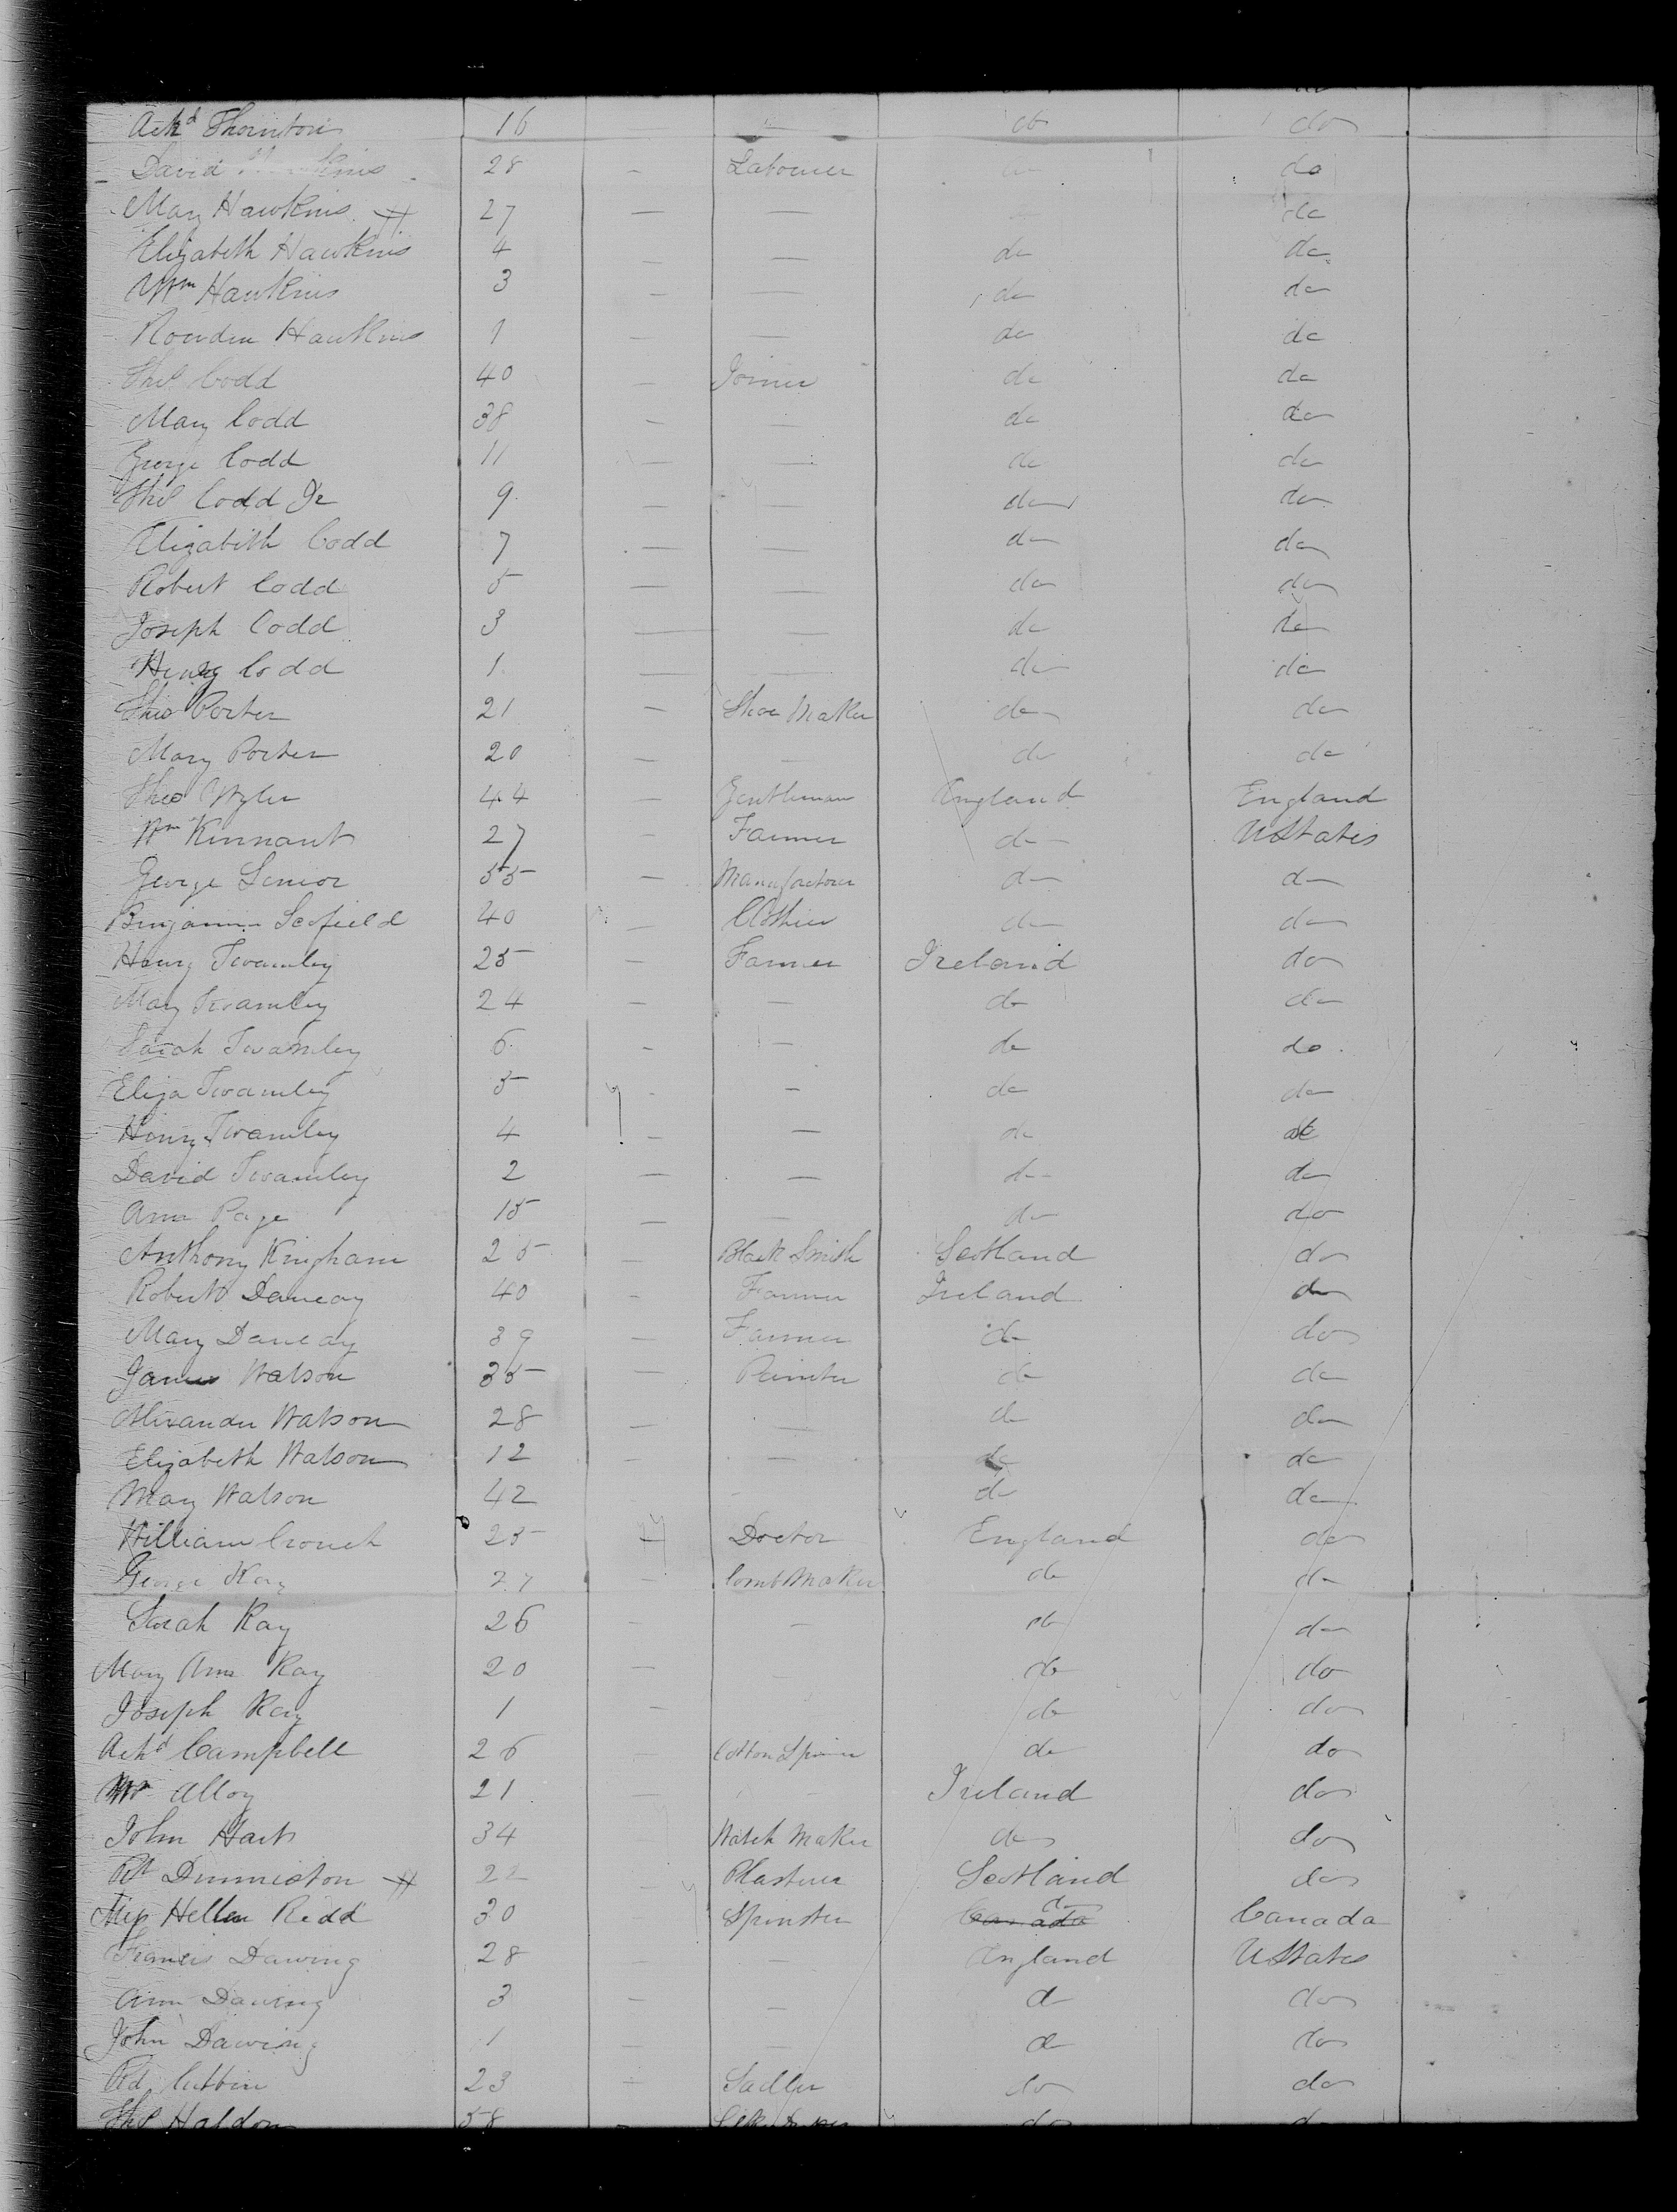 Achd Thornton 16 — do do
David Hawkins 28 — Labourer do
Mary Hawkins 27 — — do
Elizabeth Hawkins 4 — — do do
Wm Hawkins 3 — — do do
Rowden Hawkins 1 — — do do
Thos Codd 40 — Joiner do do
Mary Codd 38 — — do do
George Codd 11 — — do do
Thos Codd Jr 9 — — do do
Elizabeth Codd 7 — — do do
Robert Codd 5 — — do do
Joseph Codd 3 — — do do
Henry Codd 1 — — do do
Thos Porter 21 — Shoe Maker do do
Mary Porter 20 — — do do
Thos Wyler 44 — Gentleman England England
Wm Kinnant 27 — Farmer do UStates
George Senior 55 — Manufactorer do do
Benjamin Scofield 40 — Clothier do do
Henry Twamley 25 — Farmer Ireland do
Mary Twamley 24 — — do do
Sarah Twamley 6 — — do do
Eliza Twamley 5 — — do do
Henry Twamley 4 — — do do
David Twamley 2 — — do do
Ann Page 15 — — do do
Anthony Kingham 25 — Black Smith Scotland do
Robert Dancay 40 — Farmer Ireland do
Mary Dancay 39 — Farmer do do
James Watson 35 — Painter do do
Alexander Watson 28 — — do do
Elizabeth Watson 12 — — do do
Mary Watson 42 do do
William Crouch 25 — Doctor England do
George Kay 27 — Comb Maker do do
Sarah Kay 26 — — do do
Mary Ann Kay 20 — do do
Joseph Kay 1 — do do
Achd Campbell 26 Cotton Spinner do do
Wm Alloy 21 — Ireland do
John Hart 34 Watch Maker do do
Rt Dunniston 22 — Plasterer Scotland do
Miss Hellen Redd 30 Spinster Canada do Canada
Francis Dawing 28 — England UStates
Ann Dawing 3 — — do do
John Dawing 1 — — do do
Rd Cuttin 23 — Sadler do do
Thos Haldon 58 — do do